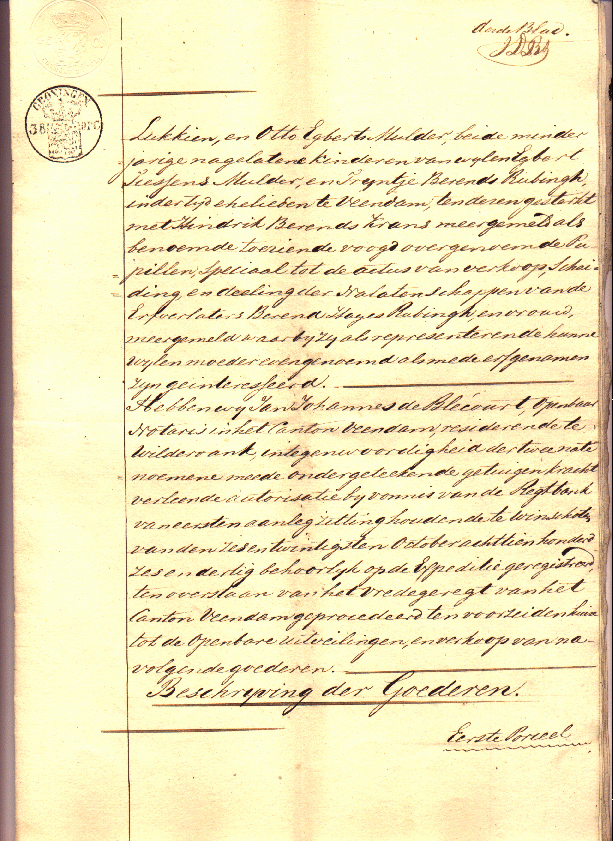 derde Blad.
GRONINGEN
Lukkien, en Otto Egberts Mulder, beide minder
jarige nagelatene kinderen van wylen Egbert
Tiessens Mulder, en Tryntje Berends Rubingh,
in der tyd ehelieden te Veendam, ten dezen gesterkt
met Hindrik Berends Krans meergemeld als
benoemde toeziende voogd over genoemde Pu-
pillen, speciaal tot de actus van verkoop, Schei-
ding en deeling der Nalatenschappen van de
Erfverlaters Berend Hayes Rubingh, en vrouw,
meergemeld waarby zy als representerende hunne
wylen moeder evengenoemd als mede erfgenamen
zyn geinteresseerd.
Hebben wy Jan Johannes de Blécourt, Openbaar
Notaris in het Canton Veendam, residerende te
Wildervank, in tegenwoordigheid der twee na te
noemene mede ondergeteekende getuigen kracht
verleende autorisatie by vonnis van de Regtbank
van eersten aanleg zitting houdende te Winschoten
van den zesentwintigsten October achttien honderd
zes en dertig behoorlyk op de Expeditie geregistreerd,
ten overstaan van het vredegeregt van het
Canton Veendam geprocedeerd ten voorzeiden huize
tot de Openbare uitveilingen, en verkoop van na-
volgende goederen.
Beschryving der Goederen.
Eerste Perceel